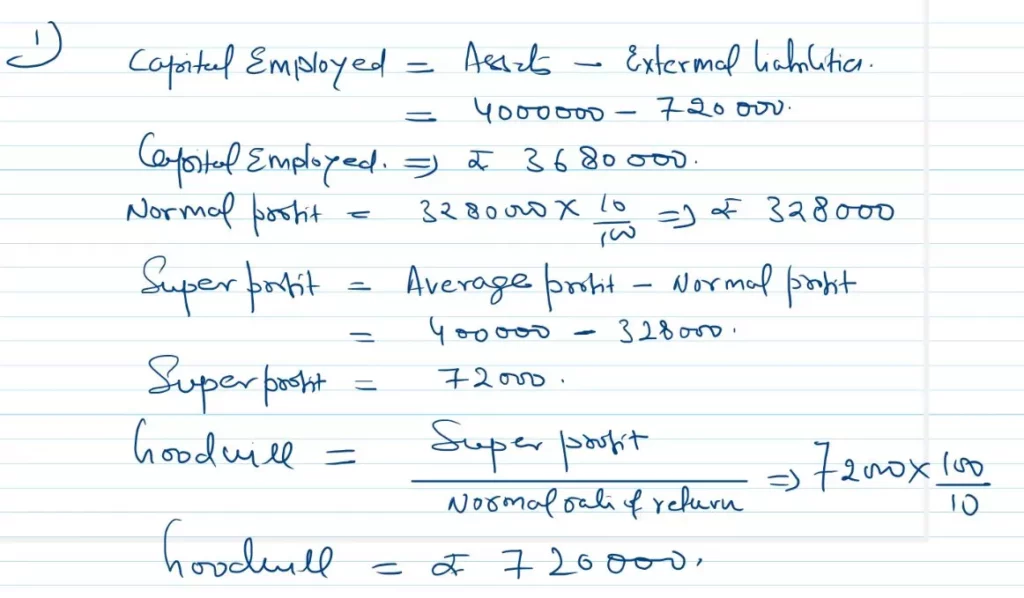 1)
Capital Employed = Assets - External liabilities.
= 4000000 - 720000.
Capital Employed. ⇒ ₹ 3680000.
Normal profit = 3280000 × 10/100 ⇒ ₹ 328000
Super profit = Average profit - Normal profit
= 400000 - 328000.
Super profit = 72000.
Goodwill = Super profit / Normal rate of return ⇒ 72000 × 100/10
Goodwill = ₹ 720000.